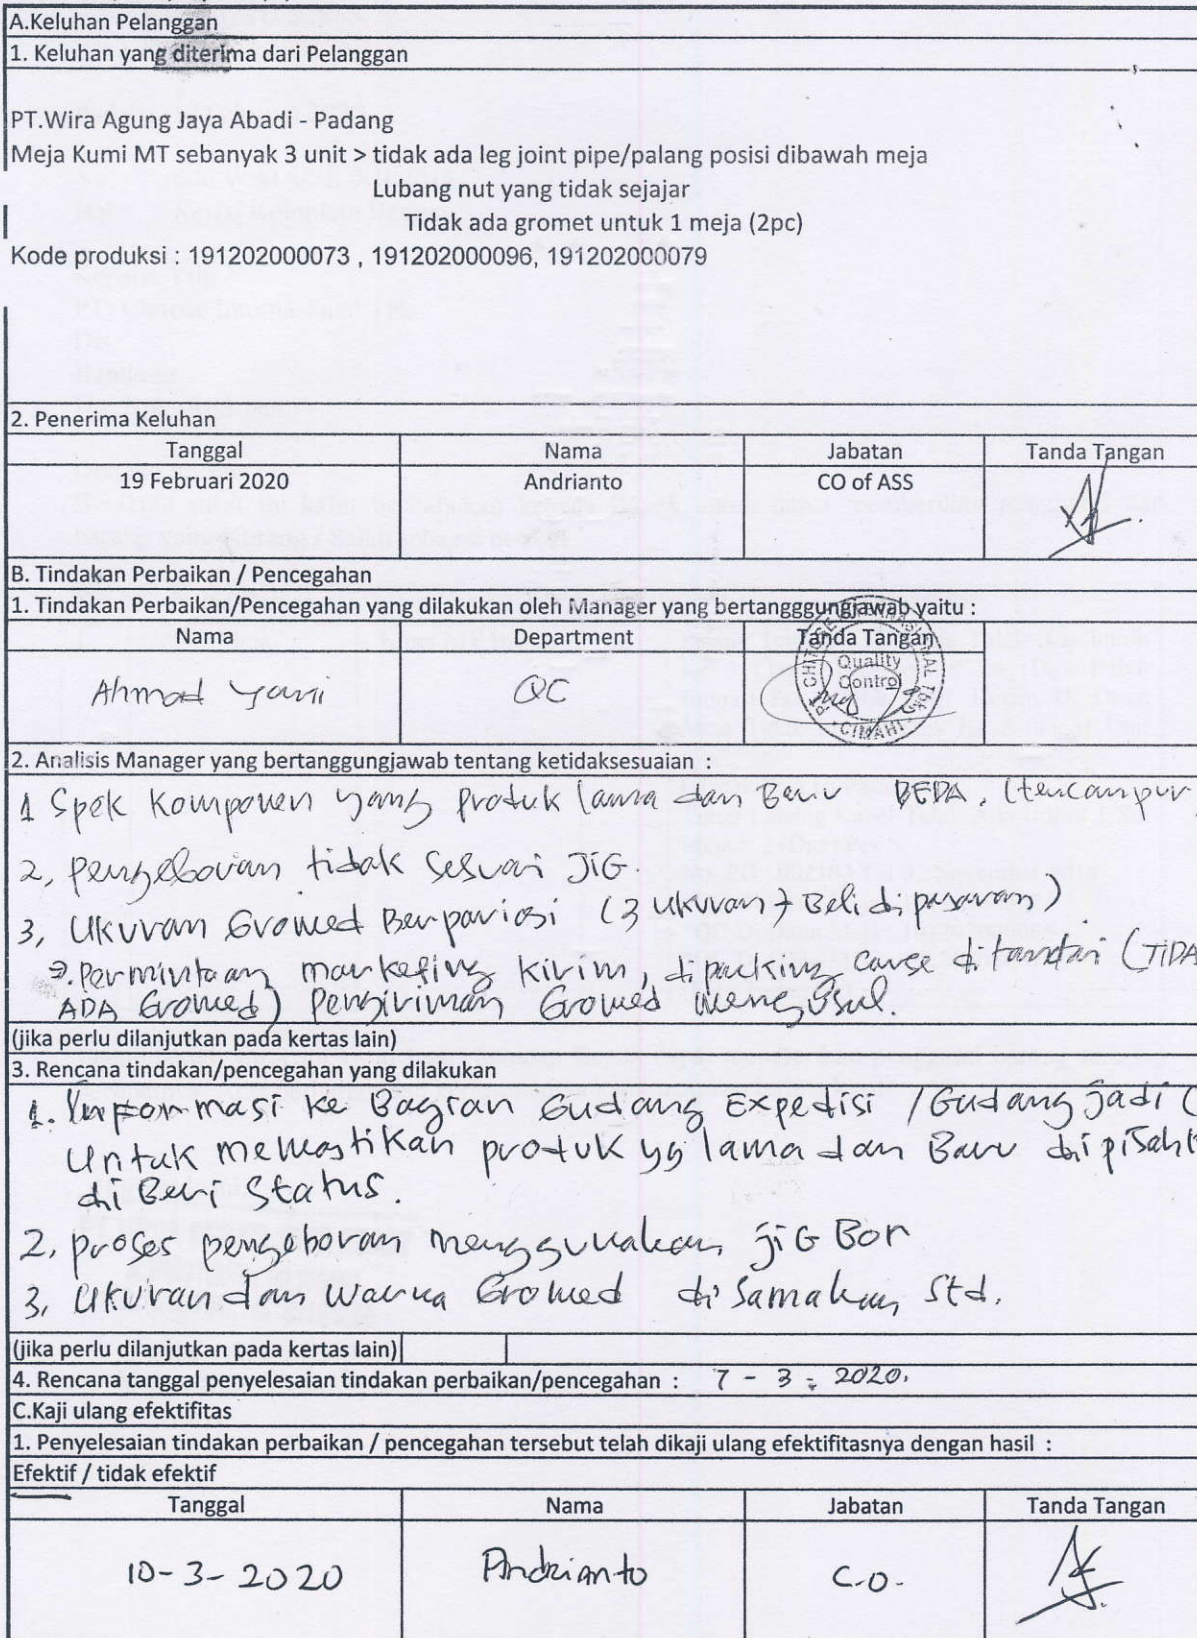 A.Keluhan Pelanggan
1. Keluhan yang diterima dari Pelanggan
PT.Wira Agung Jaya Abadi - Padang
Meja Kumi MT sebanyak 3 unit > tidak ada leg joint pipe/palang posisi dibawah meja
Lubang nut yang tidak sejajar
Tidak ada gromet untuk 1 meja (2pc)
Kode produksi : 191202000073 , 191202000096, 191202000079
2. Penerima Keluhan
Tanggal Nama Jabatan Tanda Tangan
19 Februari 2020 Andrianto CO of ASS
B. Tindakan Perbaikan / Pencegahan
1. Tindakan Perbaikan/Pencegahan yang dilakukan oleh Manager yang bertangggungjawab yaitu :
Nama Department Tanda Tangan
Ahmad Yani QC
PT CHITOSE INTERNASIONAL Tbk
Quality
Control
CIMAHI
2. Analisis Manager yang bertanggungjawab tentang ketidaksesuaian :
1 Spek Komponen yang produk lama dan Baru BEDA. (tercampur
2, pengeboran tidak sesuai JIG
3, Ukuran Gromed Berpariasi (3 ukuran → Beli dipasaran)
Permintaan marketing kirim, dipacking ditandai (TIDA
ADA Gromed) Pengiriman Gromed menyusul.
(jika perlu dilanjutkan pada kertas lain)
3. Rencana tindakan/pencegahan yang dilakukan
1. Informasi ke Bagian Gudang Expedisi /Gudang jadi (
Untuk memastikan produk yg lama dan Baru dipisahk
di Beri Status.
2, proses pengeboran menggunakan jiG Bor
3, Ukuran dan warna Gromed di Samakan Std.
(jika perlu dilanjutkan pada kertas lain)
4. Rencana tanggal penyelesaian tindakan perbaikan/pencegahan : 7 - 3 - 2020.
C.Kaji ulang efektifitas
1. Penyelesaian tindakan perbaikan / pencegahan tersebut telah dikaji ulang efektifitasnya dengan hasil :
Efektif / tidak efektif
Tanggal Nama Jabatan Tanda Tangan
10-3-2020 Andrianto C.O.